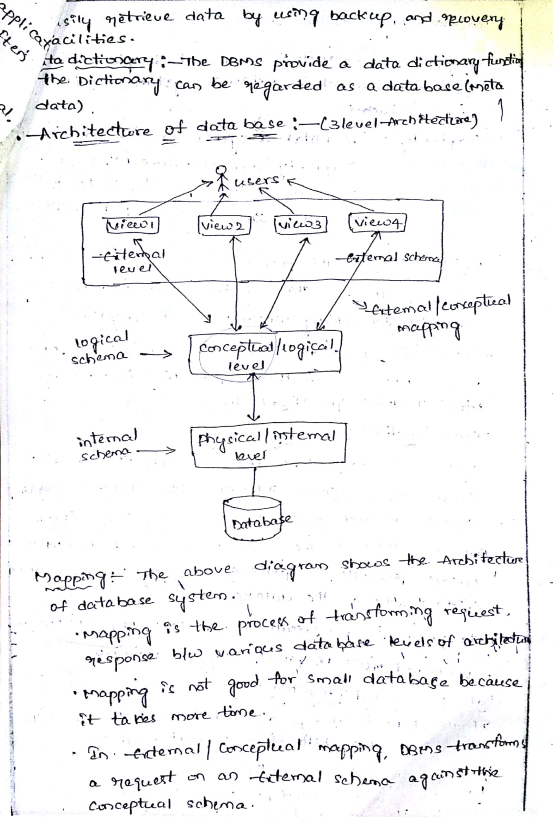 sily retrieve data by using backup, and recovery
facilities.
ta dictionary :- The DBMS provide a data dictionary function
the Dictionary can be regarded as a database (meta
data)
• Architecture of data base :- (3 level Architecture)
users
view1
view2
view3
view4
External
level
External schema
External/conceptual
mapping
logical
schema
conceptual/logical
level
internal
schema
physical/internal
level
Database
Mapping :- The above diagram shows the Architecture
of database system.
• Mapping is the process of transforming request,
response b/w various database levels of architecture
• Mapping is not good for small database because
it takes more time.
• In External/conceptual mapping, DBMS transforms
a request on an External schema against the
conceptual schema.